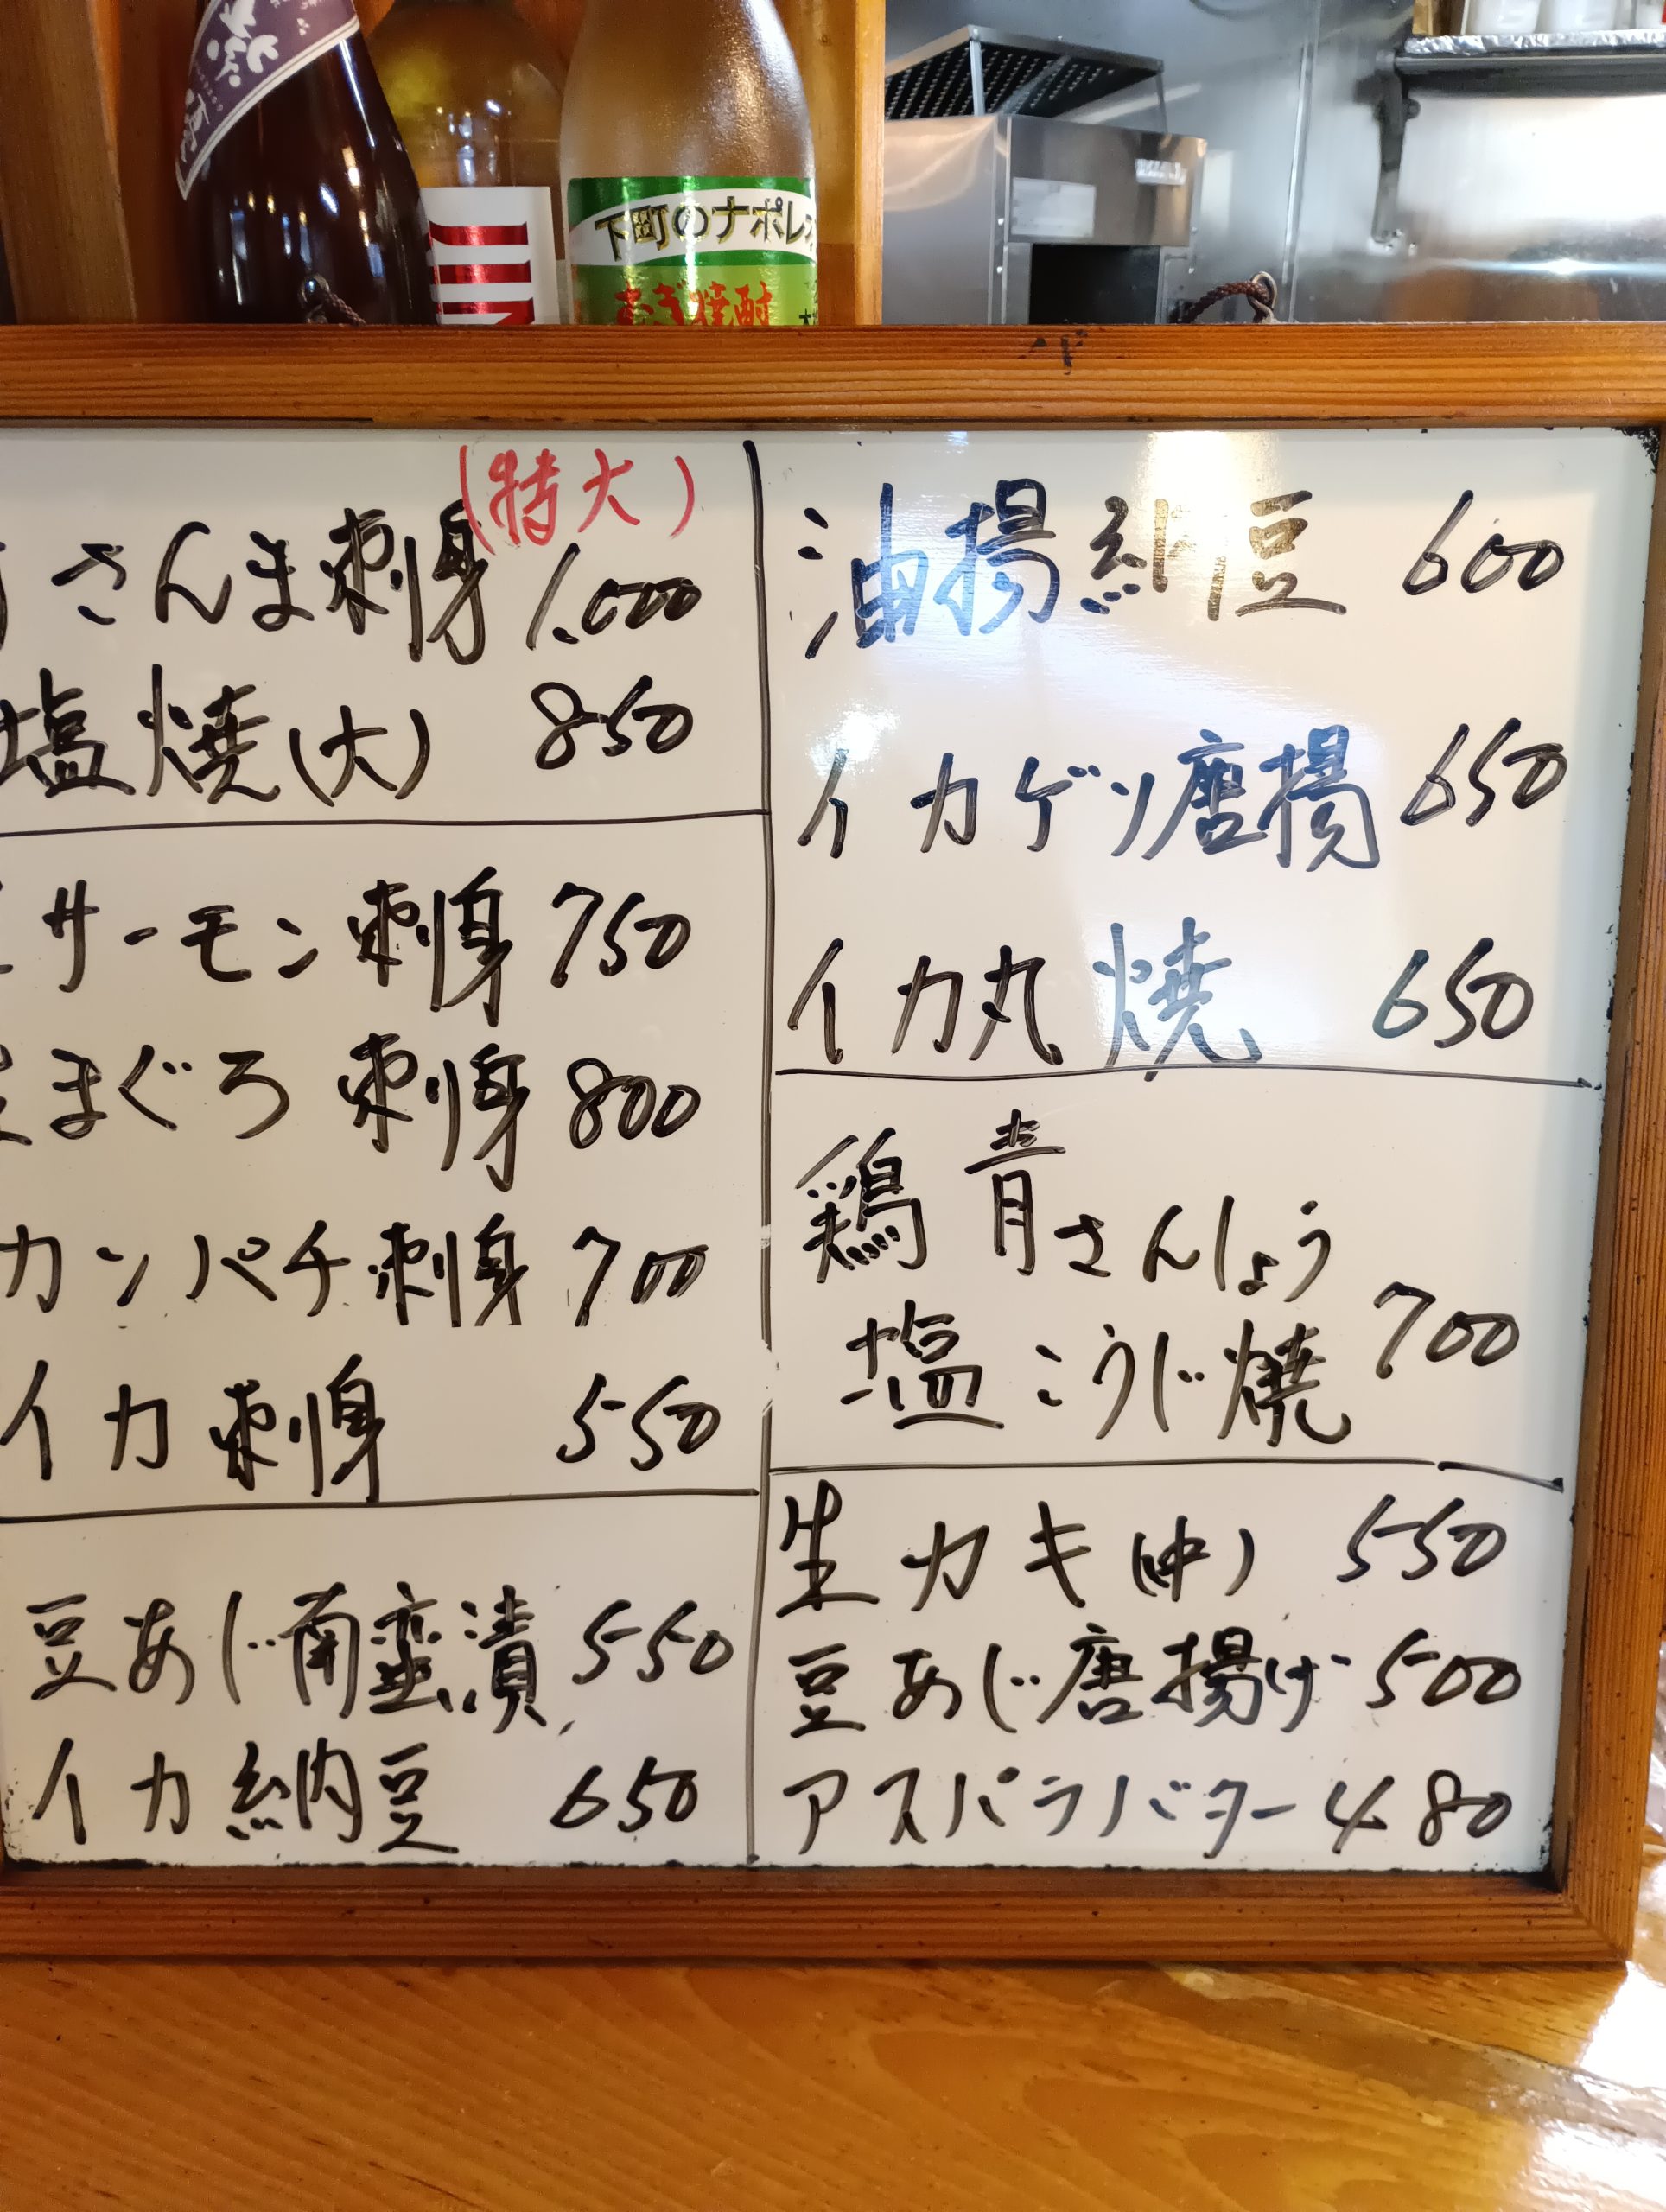 下町のナポレオ
むぎ焼酎
(特大)
さんま刺身 1.000
塩焼(大) 850
サーモン刺身 750
まぐろ刺身 800
カンパチ刺身 700
イカ刺身 550
豆あじ南蛮漬 550
イカ納豆 650
油揚納豆 600
イカゲソ唐揚 650
イカ丸焼 650
鶏青さんしょう
塩こうじ焼 700
生カキ(中) 550
豆あじ唐揚げ 500
アスパラバター 480